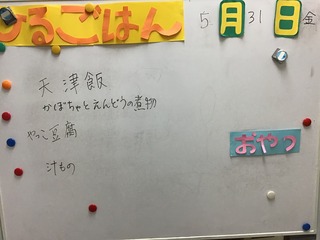 ひるごはん
5月31日金
天津飯
かぼちゃとえんどうの煮物
やっこ豆腐
汁もの
おやつ